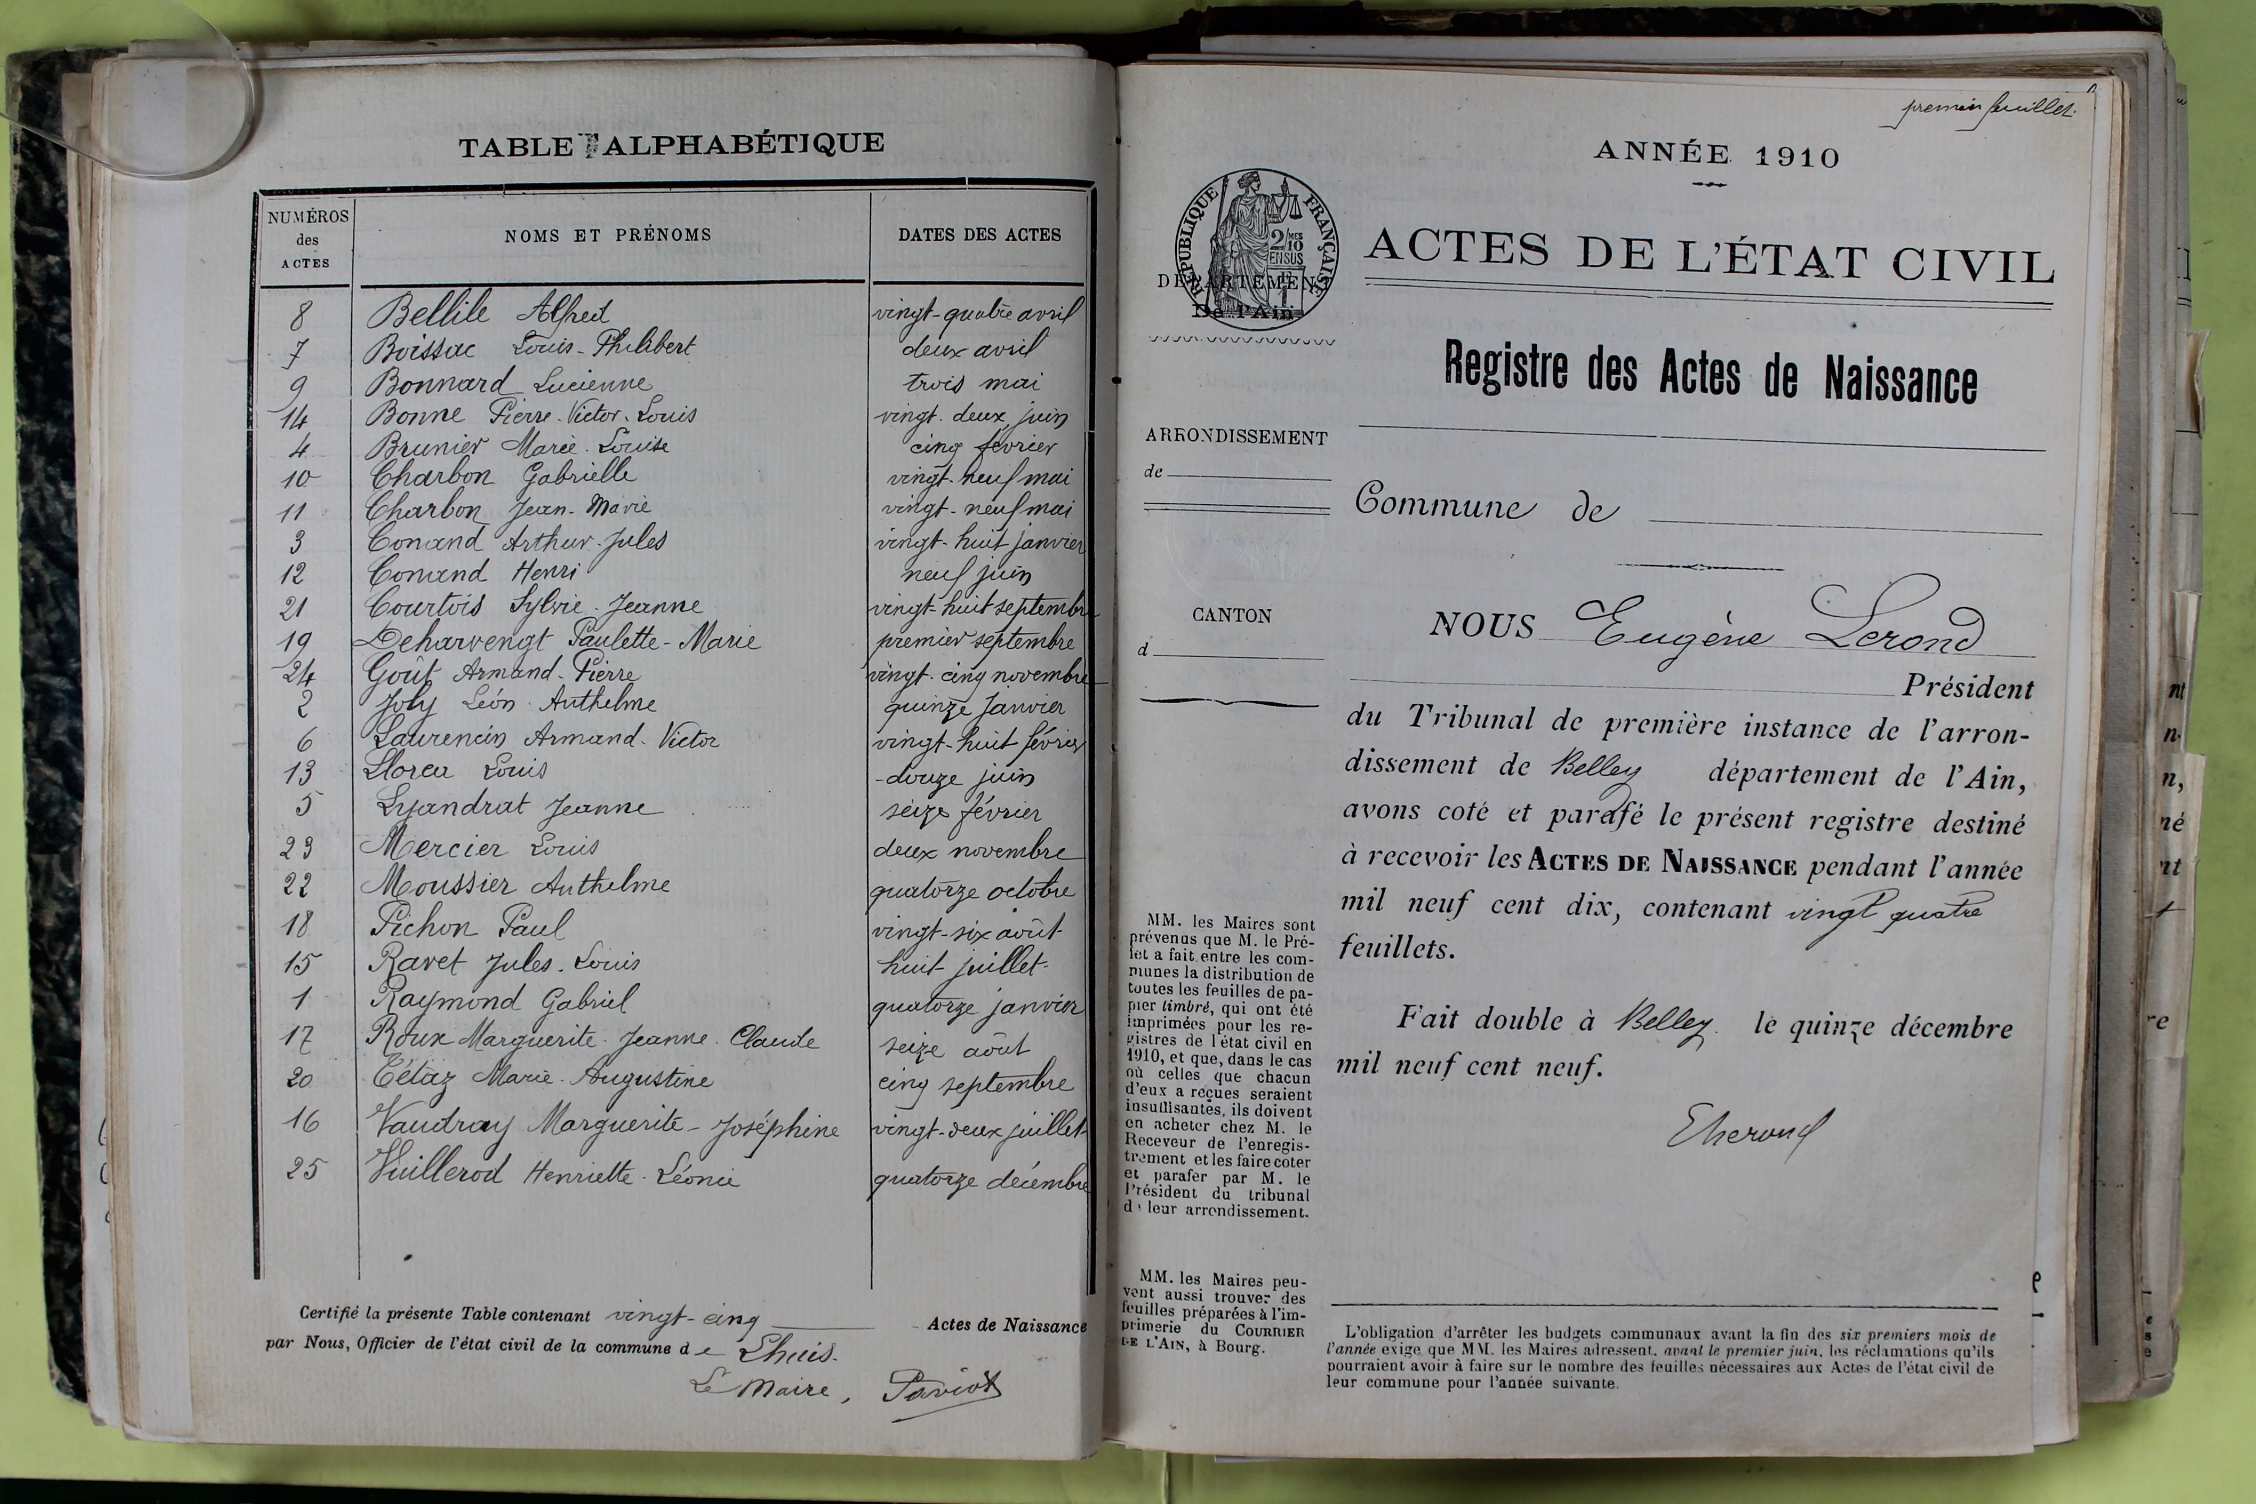 TABLE ALPHABÉTIQUE
NUMÉROS des ACTES
NOMS ET PRÉNOMS
DATES DES ACTES
8 Bellile Alfred vingt-quatre avril
7 Boissac Louis-Philibert deux avril
9 Bonnard Lucienne trois mai
14 Bonne Pierre-Victor-Louis vingt-deux juin
4 Brunier Marie-Louise cinq février
10 Charbon Gabrielle vingt-neuf mai
11 Charbon Jean-Marie vingt-neuf mai
3 Conand Arthur-Jules vingt-huit janvier
12 Conand Henri neuf juin
21 Courtois Sylvie-Jeanne vingt-huit septembre
19 Deharvengt Paulette-Marie premier septembre
24 Goût Armand-Pierre vingt-cinq novembre
2 Joly Léon Anthelme quinze janvier
6 Laurencin Armand-Victor vingt-huit février
13 Llorca Louis douze juin
5 Lyandrat Jeanne seize février
23 Mercier Louis deux novembre
22 Moussier Anthelme quatorze octobre
18 Pichon Paul vingt-six août
15 Ravet Jules-Louis huit juillet
1 Raymond Gabriel quatorze janvier
17 Roux Marguerite-Jeanne-Claude seize août
20 Tétaz Marie-Augustine cinq septembre
16 Vaudray Marguerite-Joséphine vingt-deux juillet
25 Vuillerod Henriette-Léonie quatorze décembre
Certifié la présente Table contenant vingt-cinq Actes de Naissance
par Nous, Officier de l'état civil de la commune de Lhuis.
Le Maire, Paviot
premier feuillet
ANNÉE 1910
RÉPUBLIQUE FRANÇAISE
2/10 MES
EN SUS
ACTES DE L'ÉTAT CIVIL
DÉPARTEMENT
De l'Ain
Registre des Actes de Naissance
ARRONDISSEMENT
de
Commune de
CANTON
d
NOUS Eugène Lerond
Président
du Tribunal de première instance de l'arron-
dissement de Belley département de l'Ain,
avons coté et parafé le présent registre destiné
à recevoir les ACTES DE NAISSANCE pendant l'année
mil neuf cent dix, contenant vingt quatre
feuillets.
Fait double à Belley le quinze décembre
mil neuf cent neuf.
MM. les Maires sont
prévenus que M. le Pré-
fet a fait entre les com-
munes la distribution de
toutes les feuilles de pa-
pier timbré, qui ont été
imprimées pour les re-
gistres de l'état civil en
1910, et que, dans le cas
où celles que chacun
d'eux a reçues seraient
insuffisantes, ils doivent
en acheter chez M. le
Receveur de l'enregis-
trement et les faire coter
et parafer par M. le
Président du tribunal
de leur arrondissement.
MM. les Maires peu-
vent aussi trouver des
feuilles préparées à l'im-
primerie du COURRIER
DE L'AIN, à Bourg.
L'obligation d'arrêter les budgets communaux avant la fin des six premiers mois de
l'année exige que MM. les Maires adressent, avant le premier juin, les réclamations qu'ils
pourraient avoir à faire sur le nombre des feuilles nécessaires aux Actes de l'état civil de
leur commune pour l'année suivante.